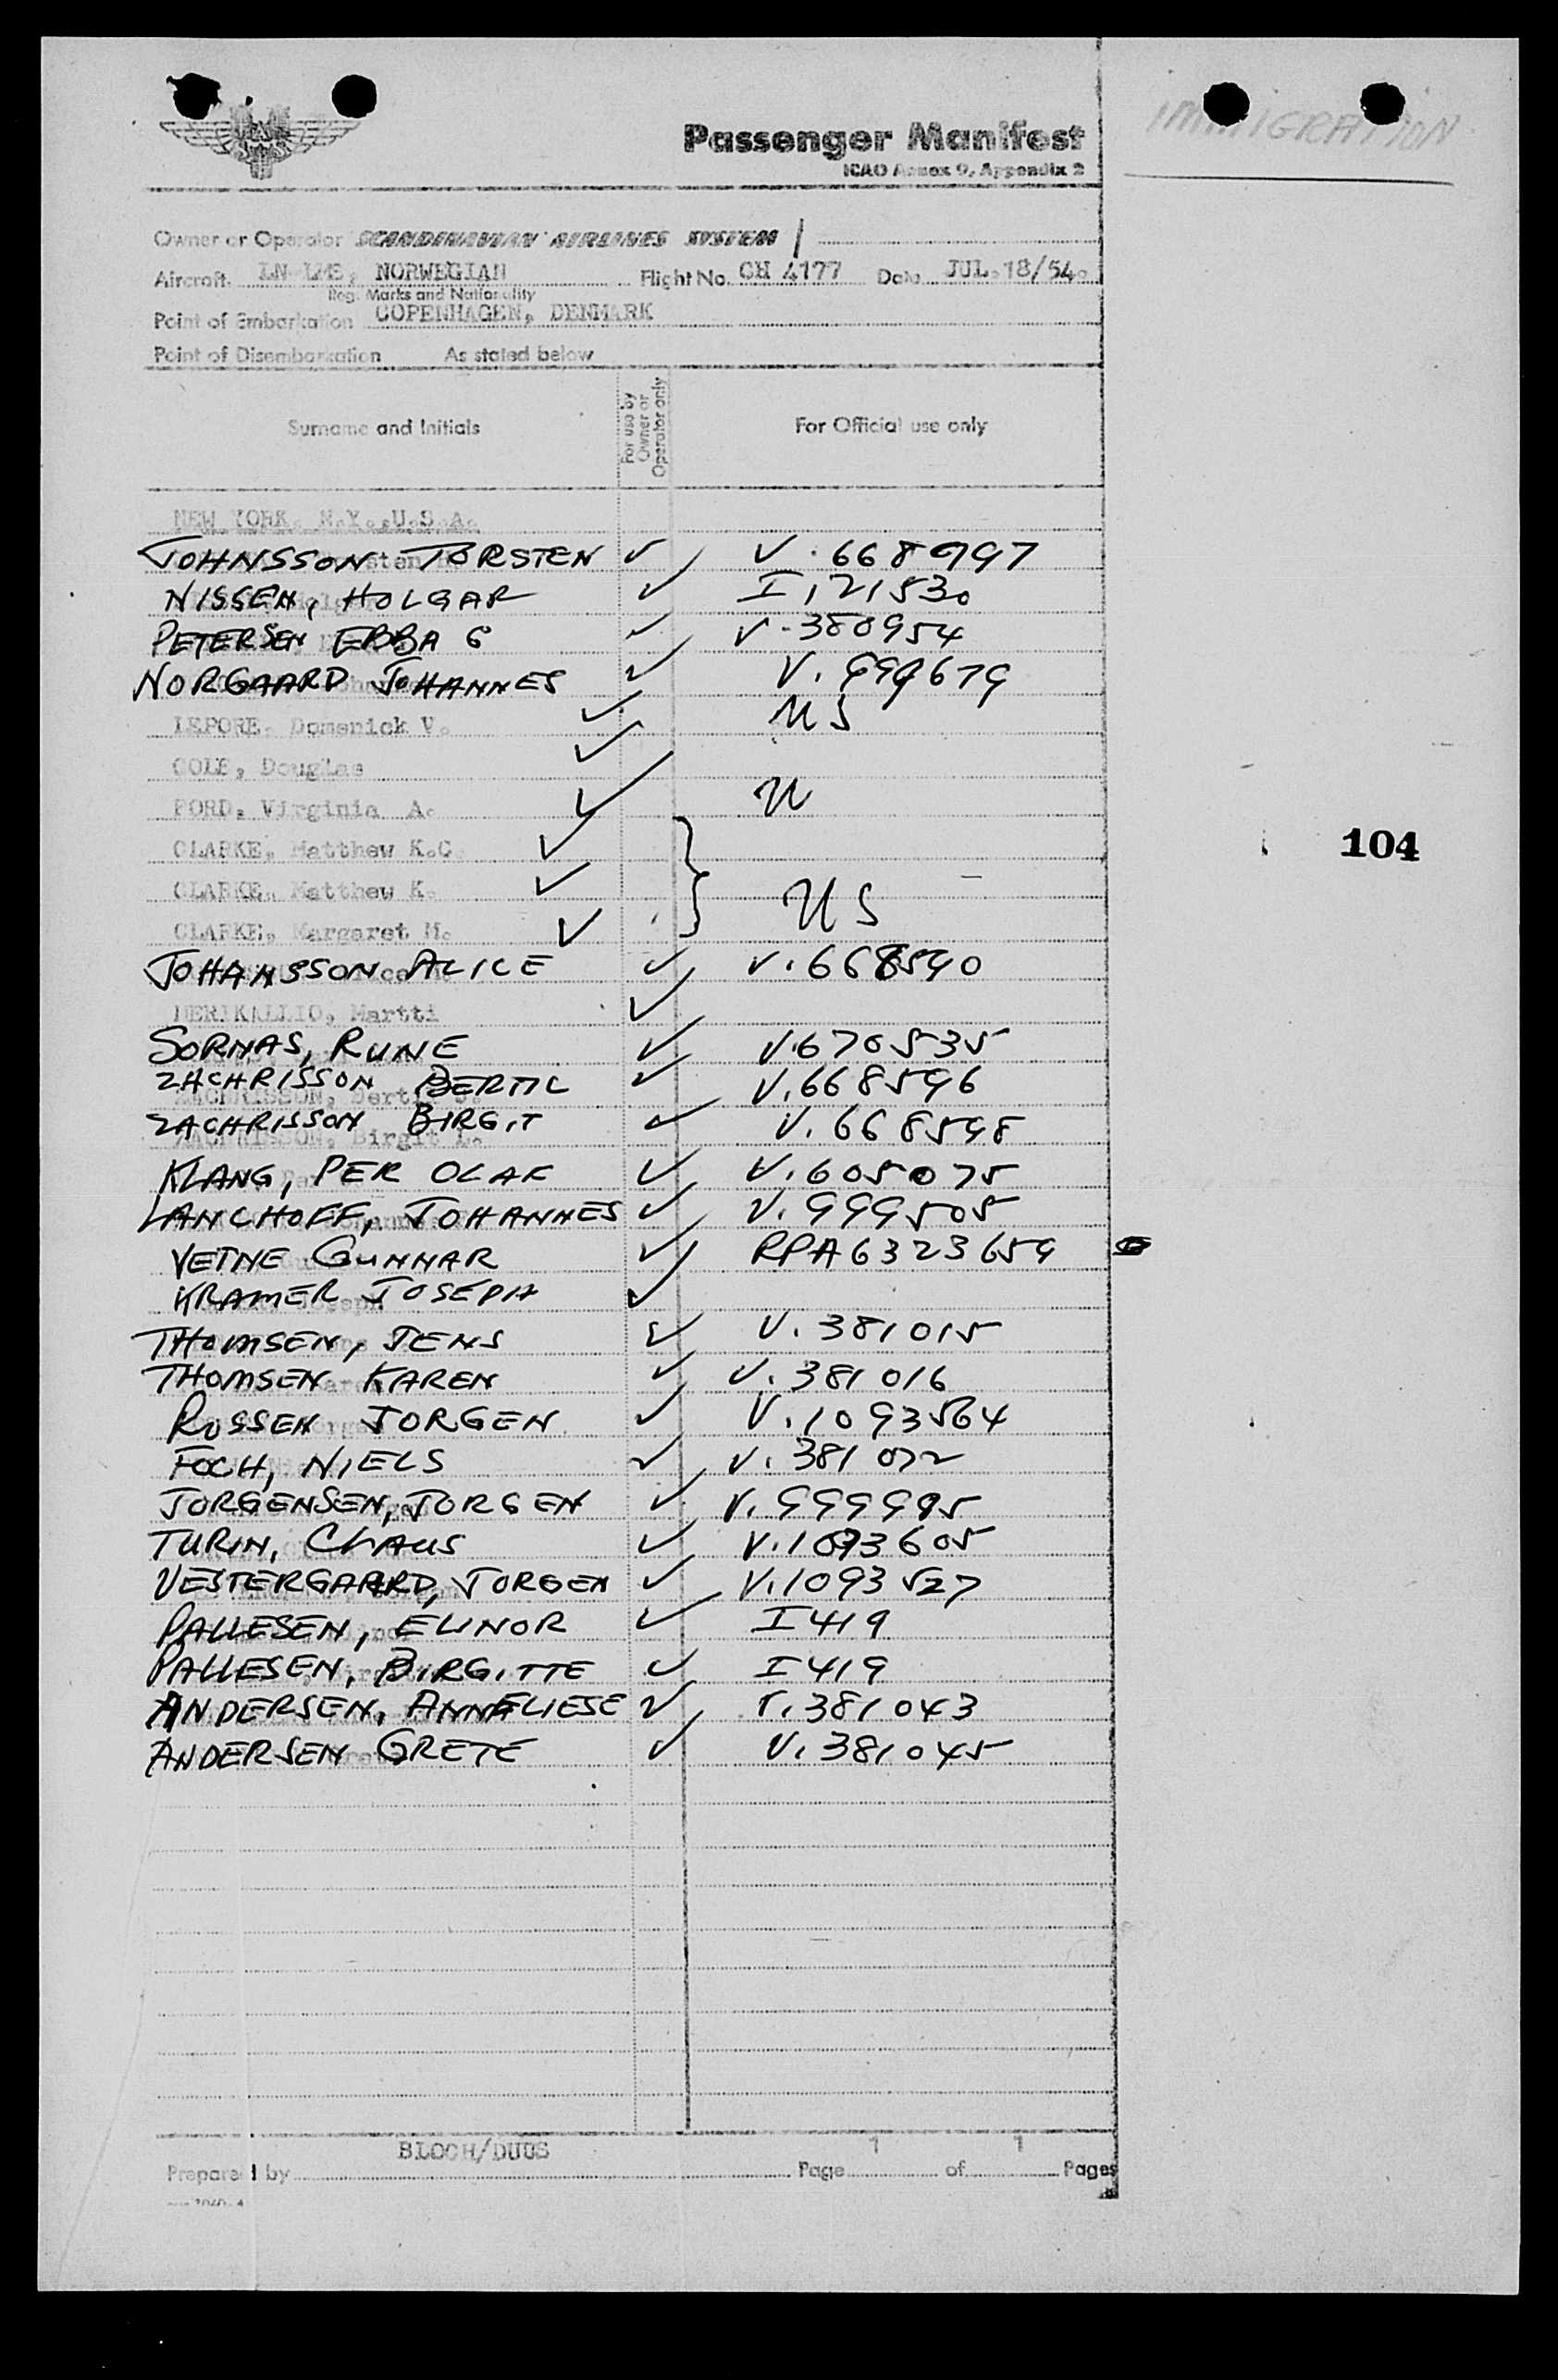 IMMIGRATION
Passenger Manifest
ICAO Annex 9, Appendix 2
Owner or Operator SCANDINAVIAN AIRLINES SYSTEM
Aircraft LN-LME, NORWEGIAN Flight No. CH 4177 Date JUL.18/54.
Reg. Marks and Nationality
Point of Embarkation COPENHAGEN, DENMARK
Point of Disembarkation As stated below
Surname and Initials For use by Owner or Operator only For Official use only
NEW YORK, N.Y., U.S.A.
JOHNSSON TORSTEN ✓ V.668997
NISSEN, HOLGAR ✓ I,21530
PETERSEN EBBA G ✓ V-380954
NORGAARD JOHANNES ✓ V.999679
LEPORE, Domenick V. ✓ US
COLE, Douglas ✓
FORD, Virginia A. ✓ U
CLARKE, Matthew K.C. ✓
CLARKE, Matthew K. ✓ US
CLARKE, Margaret M. ✓
104
JOHANSSON ALICE ✓ V.668590
MERIKALLIO, Martti ✓
SORNAS, RUNE ✓ V.670535
ZACHRISSON BERTIL ✓ V.668596
ZACHRISSON BIRGIT ✓ V.668598
KLANG, PER OLAF ✓ V.605075
LANCHOFF, JOHANNES ✓ V.999505
VETNE GUNNAR ✓ RPA6323659
KRAMER JOSEPH ✓
THOMSEN, JENS ✓ V.381015
THOMSEN KAREN ✓ V.381016
ROSSEN JORGEN ✓ V.1093564
FOCH, NIELS ✓ V.381072
JORGENSEN, JORGEN ✓ V.999995
TURIN, CLAUS ✓ V.1093605
VESTERGAARD, JORGEN ✓ V.1093527
PALLESEN, ELINOR ✓ I419
PALLESEN, BIRGITTE ✓ I419
ANDERSEN, ANNELIESE ✓ V.381043
ANDERSEN GRETE ✓ V.381045
Prepared by BLOCH/DUUS Page 1 of 1 Pages